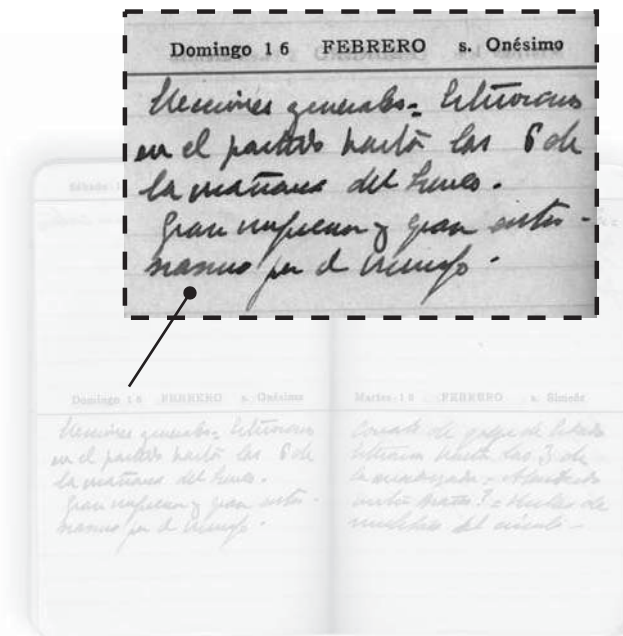 Domingo 16 FEBRERO s. Onésimo
Elecciones generales = Estuvimos
en el partido hasta las 6 de
la mañana del lunes.
Gran impresion y gran entu-
siasmo por el triunfo.
Domingo 16 FEBRERO s. Onésimo
Elecciones generales = Estuvimos
en el partido hasta las 6 de
la mañana del lunes.
Gran impresion y gran entu-
siasmo por el triunfo.
Martes 18 FEBRERO s. Simeón
Conato de golpe de Estado
hasta las 3 de
la madrugada =
de
del